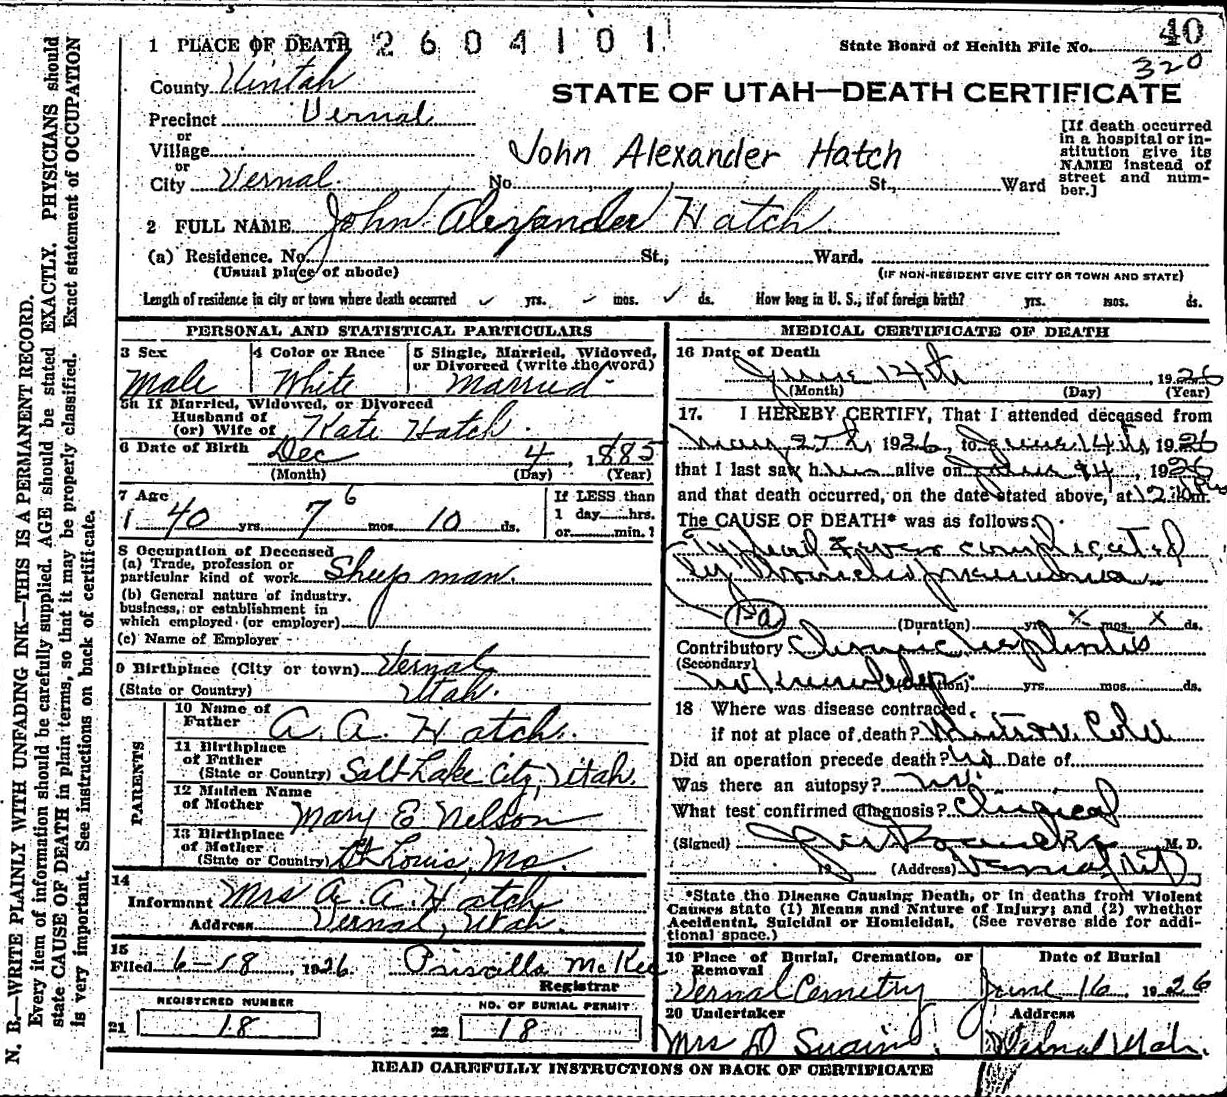 1 PLACE OF DEATH 2 6 0 4 1 0 1
State Board of Health File No. 40
320
County Uintah
STATE OF UTAH—DEATH CERTIFICATE
Precinct Vernal
or
Village
or
City Vernal No. St., Ward
John Alexander Hatch
[If death occurred
in a hospital or in-
stitution give its
NAME instead of
street and num-
ber.]
2 FULL NAME John Alexander Hatch
(a) Residence. No. St., Ward.
(Usual place of abode) (IF NON-RESIDENT GIVE CITY OR TOWN AND STATE)
Length of residence in city or town where death occurred yrs. mos. ds. How long in U. S., if of foreign birth? yrs. mos. ds.
PERSONAL AND STATISTICAL PARTICULARS
3 Sex 4 Color or Race 5 Single, Married, Widowed,
or Divorced (write the word)
Male White Married
5a If Married, Widowed, or Divorced
Husband of
(or) Wife of Kate Hatch
6 Date of Birth Dec 4, 1885
(Month) (Day) (Year)
7 Age
40 yrs. 7 6 mos. 10 ds.
If LESS than
1 day hrs.
or min.?
8 Occupation of Deceased
(a) Trade, profession or
particular kind of work Sheep man.
(b) General nature of industry,
business, or establishment in
which employed (or employer)
(c) Name of Employer
9 Birthplace (City or town) Vernal
(State or Country) Utah.
PARENTS
10 Name of
Father A. A. Hatch.
11 Birthplace
of Father
(State or Country) Salt Lake City, Utah.
12 Maiden Name
of Mother Mary E Nelson
13 Birthplace
of Mother
(State or Country) St Louis, Mo.
14
Informant Mrs A. A. Hatch
Address Vernal, Utah.
15
Filed 6-18, 1926 Priscilla McKee
Registrar
REGISTERED NUMBER NO. OF BURIAL PERMIT
21 18 22 18
MEDICAL CERTIFICATE OF DEATH
16 Date of Death
June 14th, 1926
(Month) (Day) (Year)
17. I HEREBY CERTIFY, That I attended deceased from
May 1926, to June 14th, 1926
that I last saw him alive on June 14, 1926
and that death occurred, on the date stated above, at m.
The CAUSE OF DEATH* was as follows:
Typhoid Fever complicated
by Broncho pneumonia
(Duration) yrs. x mos. x ds.
Contributory Chronic
(Secondary)
(Duration) yrs. mos. ds.
18 Where was disease contracted,
if not at place of death? Colo
Did an operation precede death? No Date of
Was there an autopsy? no.
What test confirmed diagnosis? Clinical
(Signed) M. D.
19 (Address) Vernal, Ut
*State the Disease Causing Death, or in deaths from Violent
Causes state (1) Means and Nature of Injury; and (2) whether
Accidental, Suicidal or Homicidal. (See reverse side for addi-
tional space.)
19 Place of Burial, Cremation, or
Removal Date of Burial
Vernal Cemetry June 16 1926
20 Undertaker Address
Mrs D Swain. Vernal Utah.
READ CAREFULLY INSTRUCTIONS ON BACK OF CERTIFICATE
N. B.—WRITE PLAINLY WITH UNFADING INK—THIS IS A PERMANENT RECORD.
Every item of information should be carefully supplied. AGE should be stated EXACTLY. PHYSICIANS should
state CAUSE OF DEATH in plain terms, so that it may be properly classified. Exact statement of OCCUPATION
is very important. See instructions on back of certificate.